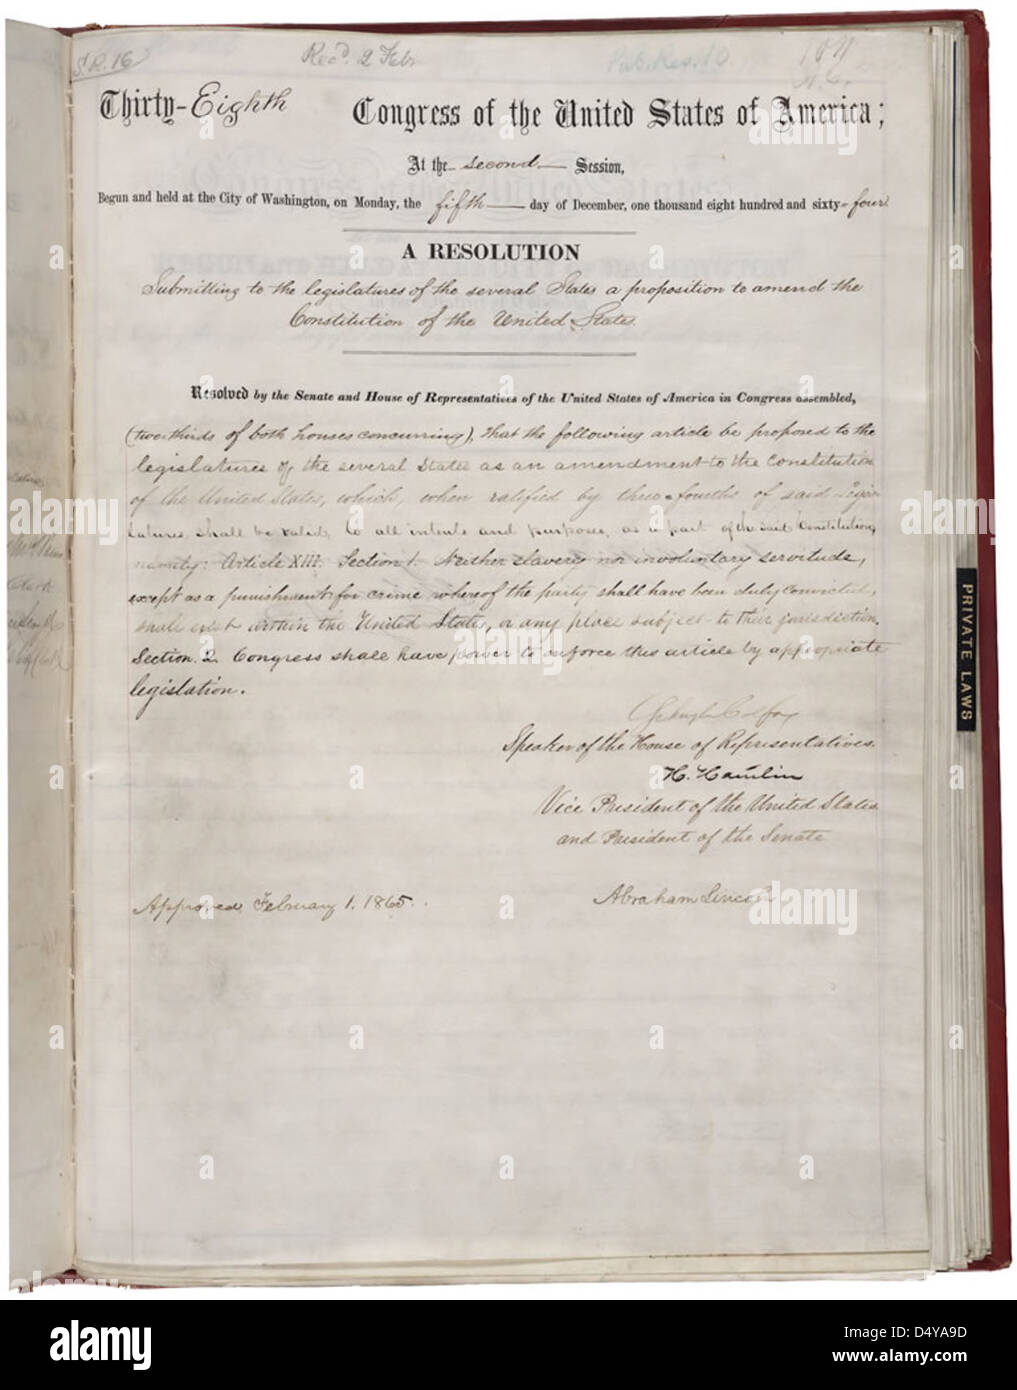 S.R. 16
Rec'd. 2 Feb.
Pub. Res. 10
Thirty-Eighth Congress of the United States of America;
At the second Session,
Begun and held at the City of Washington, on Monday, the fifth day of December, one thousand eight hundred and sixty-four
A RESOLUTION
Submitting to the legislatures of the several States a proposition to amend the
Constitution of the United States.
Resolved by the Senate and House of Representatives of the United States of America in Congress assembled,
(two-thirds of both houses concurring), that the following article be proposed to the
legislatures of the several States as an amendment to the Constitution
of the United States, which, when ratified by three-fourths of said Legis-
latures shall be valid, to all intents and purposes, as a part of the said Constitution,
namely: Article XIII. Section 1. Neither slavery nor involuntary servitude,
except as a punishment for crime whereof the party shall have been duly convicted,
shall exist within the United States, or any place subject to their jurisdiction.
Section. 2. Congress shall have power to enforce this article by appropriate
legislation.
Schuyler Colfax
Speaker of the House of Representatives.
H. Hamlin
Vice President of the United States
and President of the Senate
Approved, February 1. 1865.
Abraham Lincoln
PRIVATE LAWS
alamy
alamy
Image ID: D4YA9D
www.alamy.com